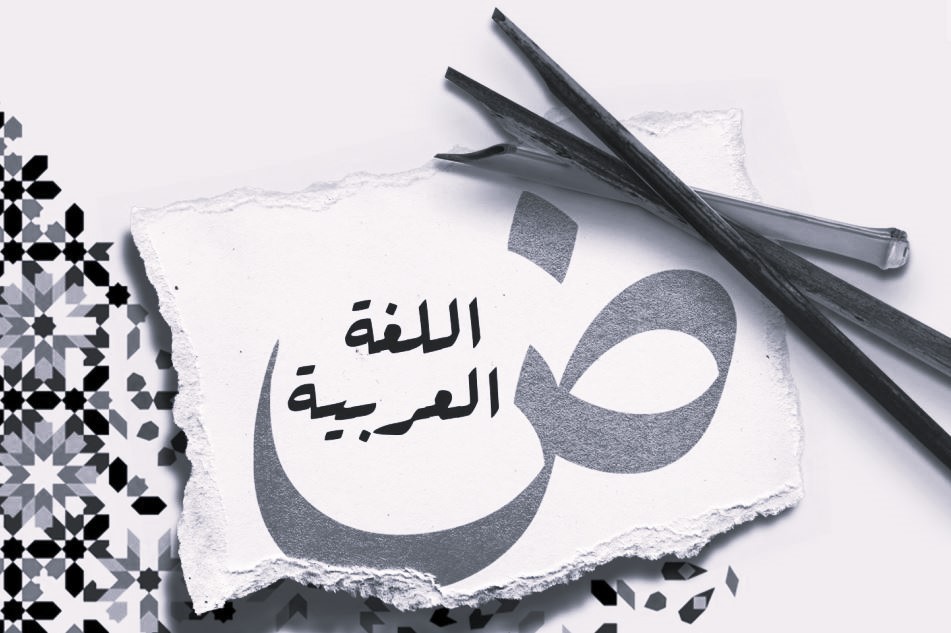 ض
اللغة
العربية